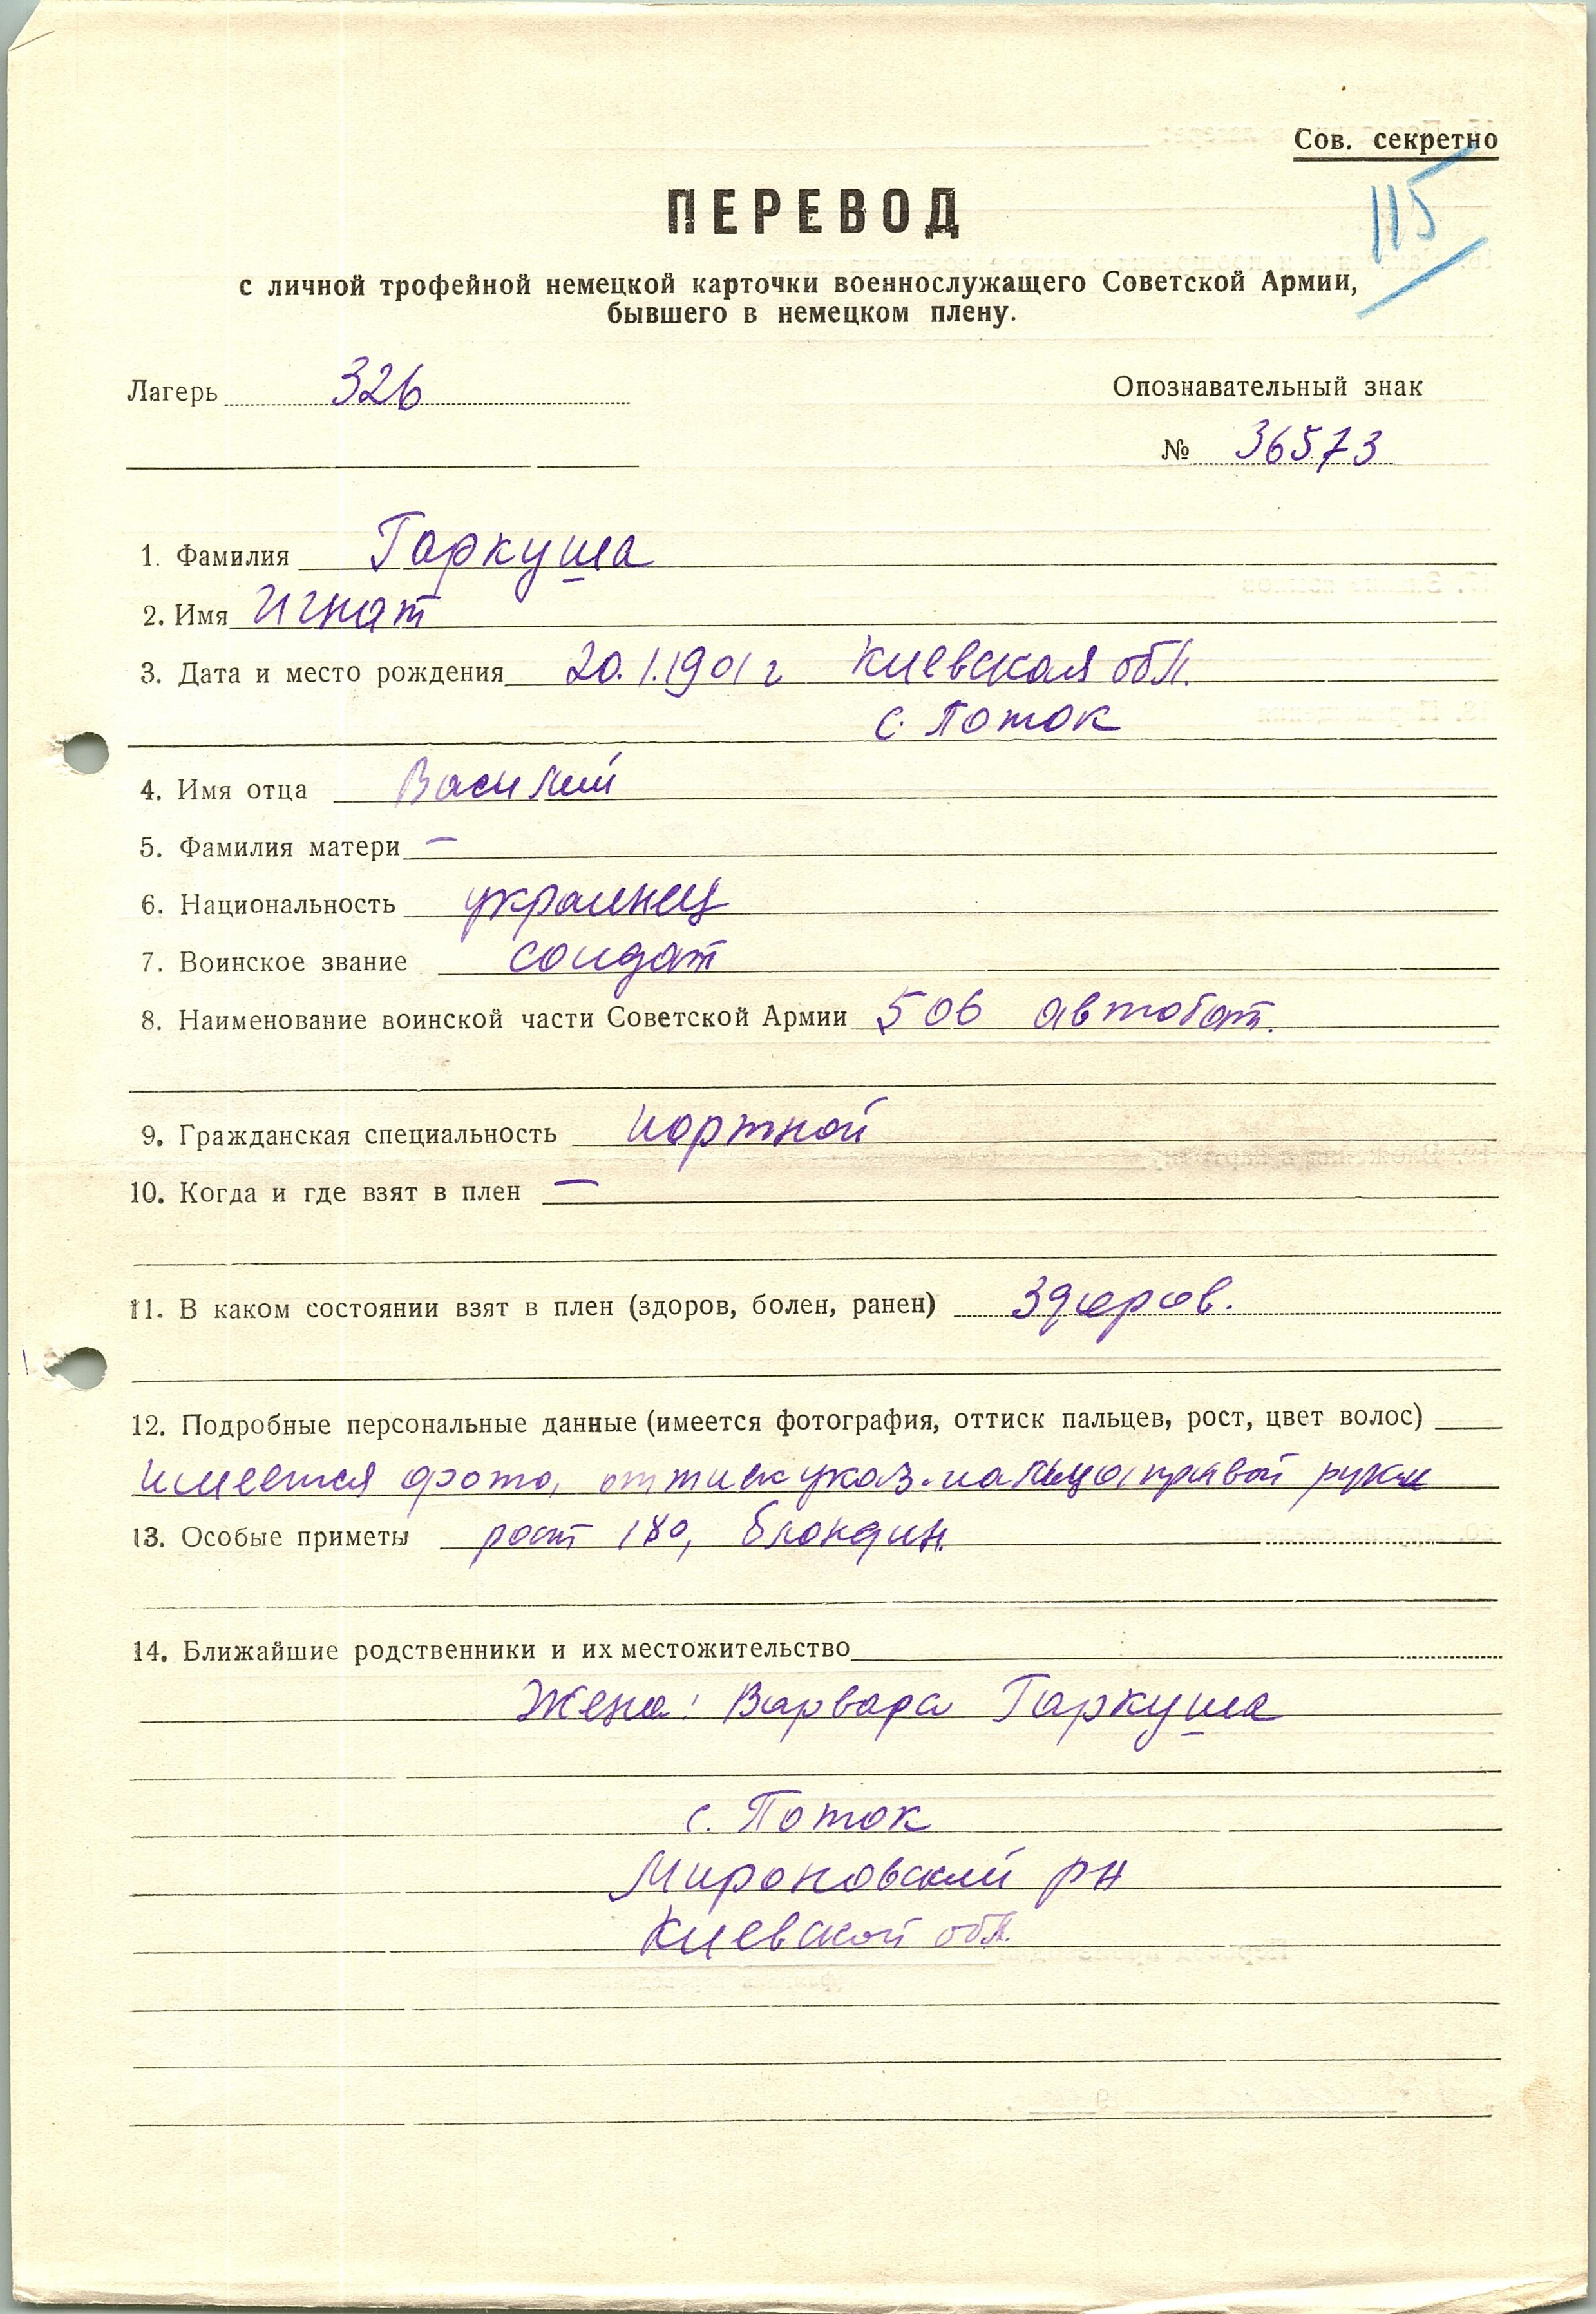 Сов. секретно
115
ПЕРЕВОД
с личной трофейной немецкой карточки военнослужащего Советской Армии,
бывшего в немецком плену.
Лагерь 326
Опознавательный знак
№ 36573
1. Фамилия Гаркуша
2. Имя Игнат
3. Дата и место рождения 20.1.1901 г Киевская обл.
с. Поток
4. Имя отца Василий
5. Фамилия матери —
6. Национальность украинец
7. Воинское звание солдат
8. Наименование воинской части Советской Армии 506 автобат.
9. Гражданская специальность портной
10. Когда и где взят в плен —
11. В каком состоянии взят в плен (здоров, болен, ранен) Здоров.
12. Подробные персональные данные (имеется фотография, оттиск пальцев, рост, цвет волос)
имеется фото, оттиск указ. пальца правой руки
13. Особые приметы рост 180, блондин.
14. Ближайшие родственники и их местожительство
Жена: Варвара Гаркуша
с. Поток
Мироновский рн
Киевской обл.